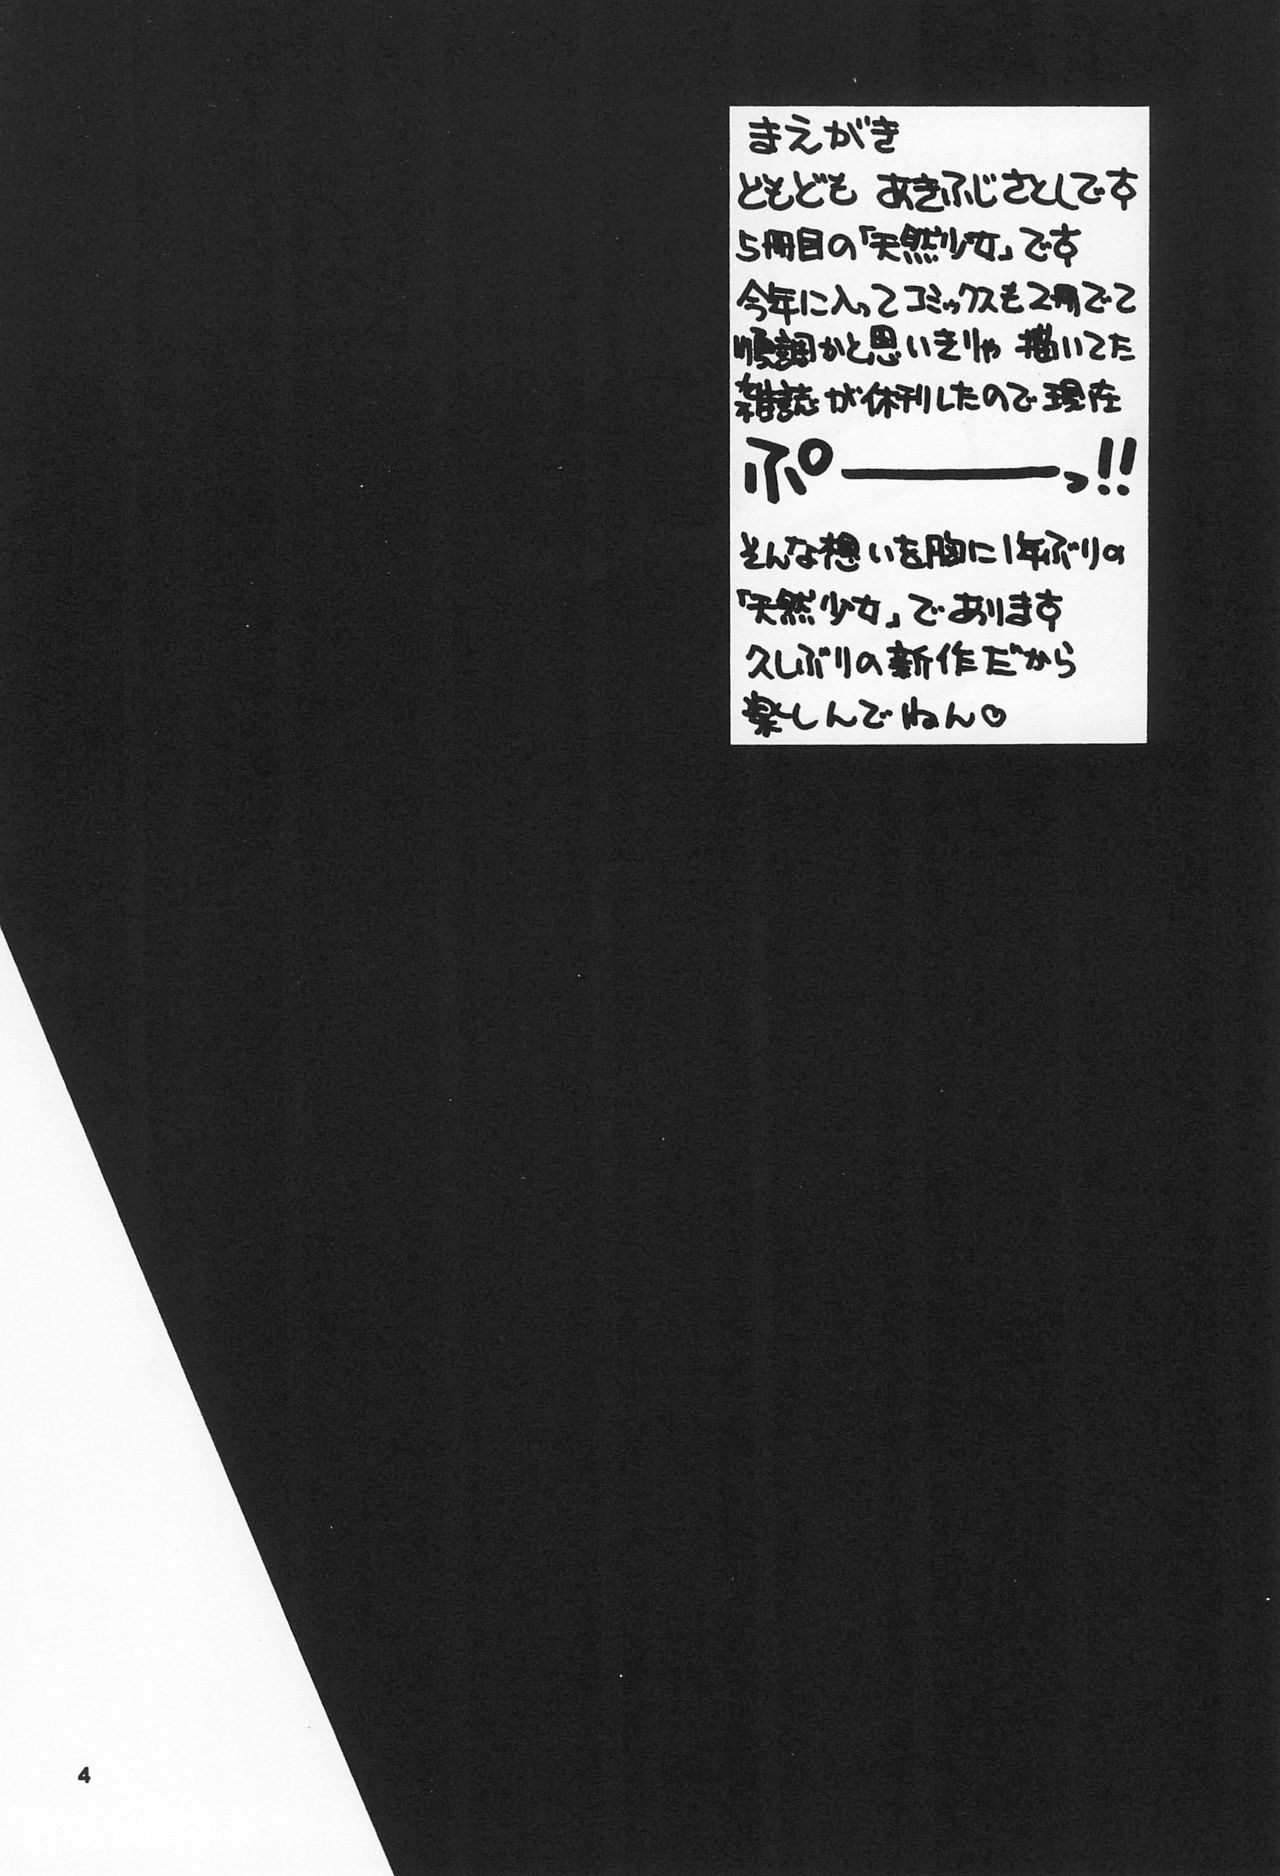 まえがき
どもども あきふじさとしです
5冊目の「天然少女」です
今年に入ってコミックスも2冊でて
順調かと思いきりゃ 描いてた
雑誌が休刊したので現在
ぷ――――っ!!
そんな想いを胸に1年ぶりの
「天然少女」であります
久しぶりの新作だから
楽しんでねん♡
4